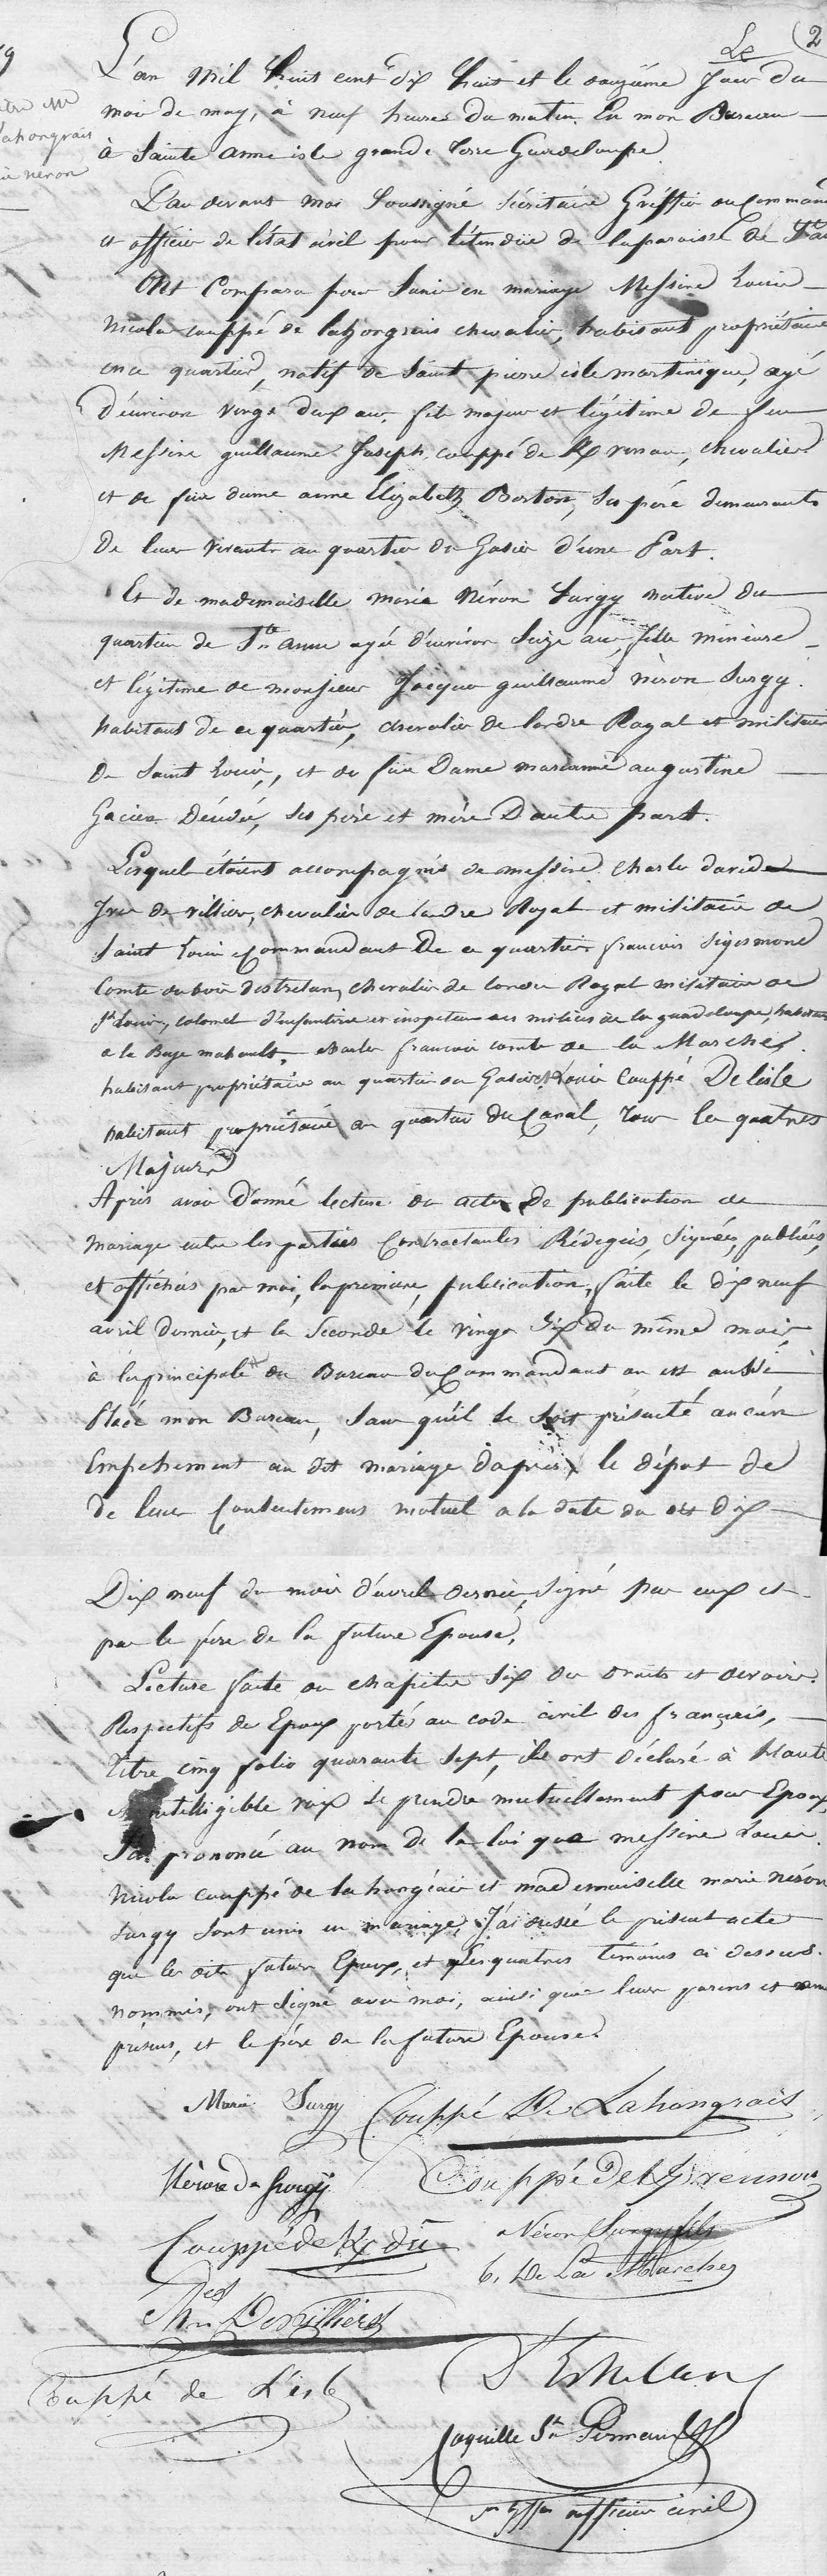 Le 2
L'an Mil huit cent dix huit et le onzième Jour du
moi de may, à neuf heures du matin. En mon Bureau
à Sainte Anne isle grande Terre Guadeloupe.
Par devant moi Soussigné Sécritaire Gréffier du Command
et officier de l'état civil pour l'étendüe de la paroisse de
Ont Comparu pour S'unir en mariage Messire Louis
Nicolas couppé de lahongrais chevalier, habitant propriétaire
en ce quartier, natif de Saint pierre isle martinique, agé
d'environ vingt deux ans, fils majeur et légitime de feu
Messire guillaume Joseph couppé de K/venou, chevalier
et de feüe dame anne Elizabeth Borton, Ses péré demeurants
de leur vivants au quartier du Gosier d'une Part.
Et de mademoiselle marie Néron Surgy native du
quartier de Ste anne agée d'environ Seize ans, fille mineure
et légitime de monsieur Jacques guillaume néron Surgy
habitant de ce quartier, chevalier de l'ordre Royal et militaire
de Saint Louis, et de feüe Dame marianne augustine
Décédée, Ses père et mère D'autre part.
Lesquels étoient accompagnés de messire Charles david
de villiers, chevalier de l'ordre Royal et militaire de
Saint Louis Commandant De ce quartier françois Sigismond
Comte dubois destrelan, chevalier de l'ordre Royal militaire de
St Louis, colonel d'infanterie et inspecteur des milices de la guadeloupe, habitant
a la Baye mahault, charles francois comte de la Marche,
habitant propriétaire au quartier du Gosier et Louis Couppé De lisle
habitant propriétaire au quartier du Canal, tous les quatres
Majeurs
Après avoir donné lecture des actes de publication de
mariage entre les parties Contractantes Rédigées, Signées, publiées,
et affichées par moi, la premiere, publication, faite le dix neuf
avril dernier, et la Seconde le vingt Six du même mois,
à la principale du Bureau du Commandant ou est aussi
Placé mon Bureau, Sans qu'il Se Soit présenté aucun
Empechement au dit mariage d'après le dépot de
de leur Consentement mutuel a la date du dix
Dix neuf du mois d'avril dernier, Signé par eux et
par le père de la future Epouse,
Lecture faite du chapitre Six des droits et devoirs
Respectifs des Epoux portés au code civil des français,
titre cinq folio quarante Sept, ils ont déclaré à haute
et intelligible voix Se prendre mutuellement pour Epoux,
J'ai prononcé au nom de la loi que messire Louis
Nicolas couppé de lahongrais et mademoiselle marie néron
Surgy Sont unis en mariage, J'ai dressé le présent acte
que les dits futurs Epoux, et Les quatres témoins ci dessus
nommés, ont Signé avec moi, ainsi que leurs parens et amis
présens, et le père de la future Epouse.
Marie Surgy Couppé De Lahongrais
Néron de Surgy Couppé De K/vennou
Couppé de K/ Néron Surgy fils
C. De La Marche
Devilliers
Couppé de L'isle D'Estrelan
Coquille Ste
officier civil